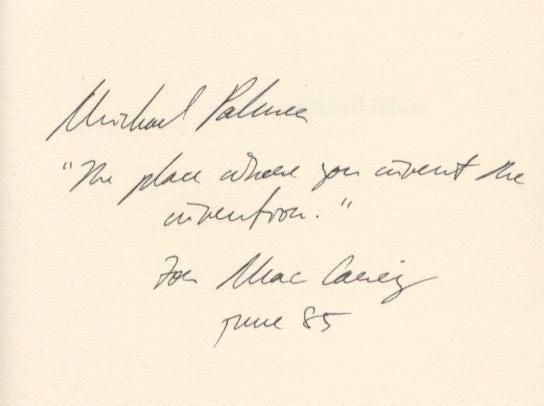 Michael Palmer
"The place where you invent the
invention."
For Mac
June 85